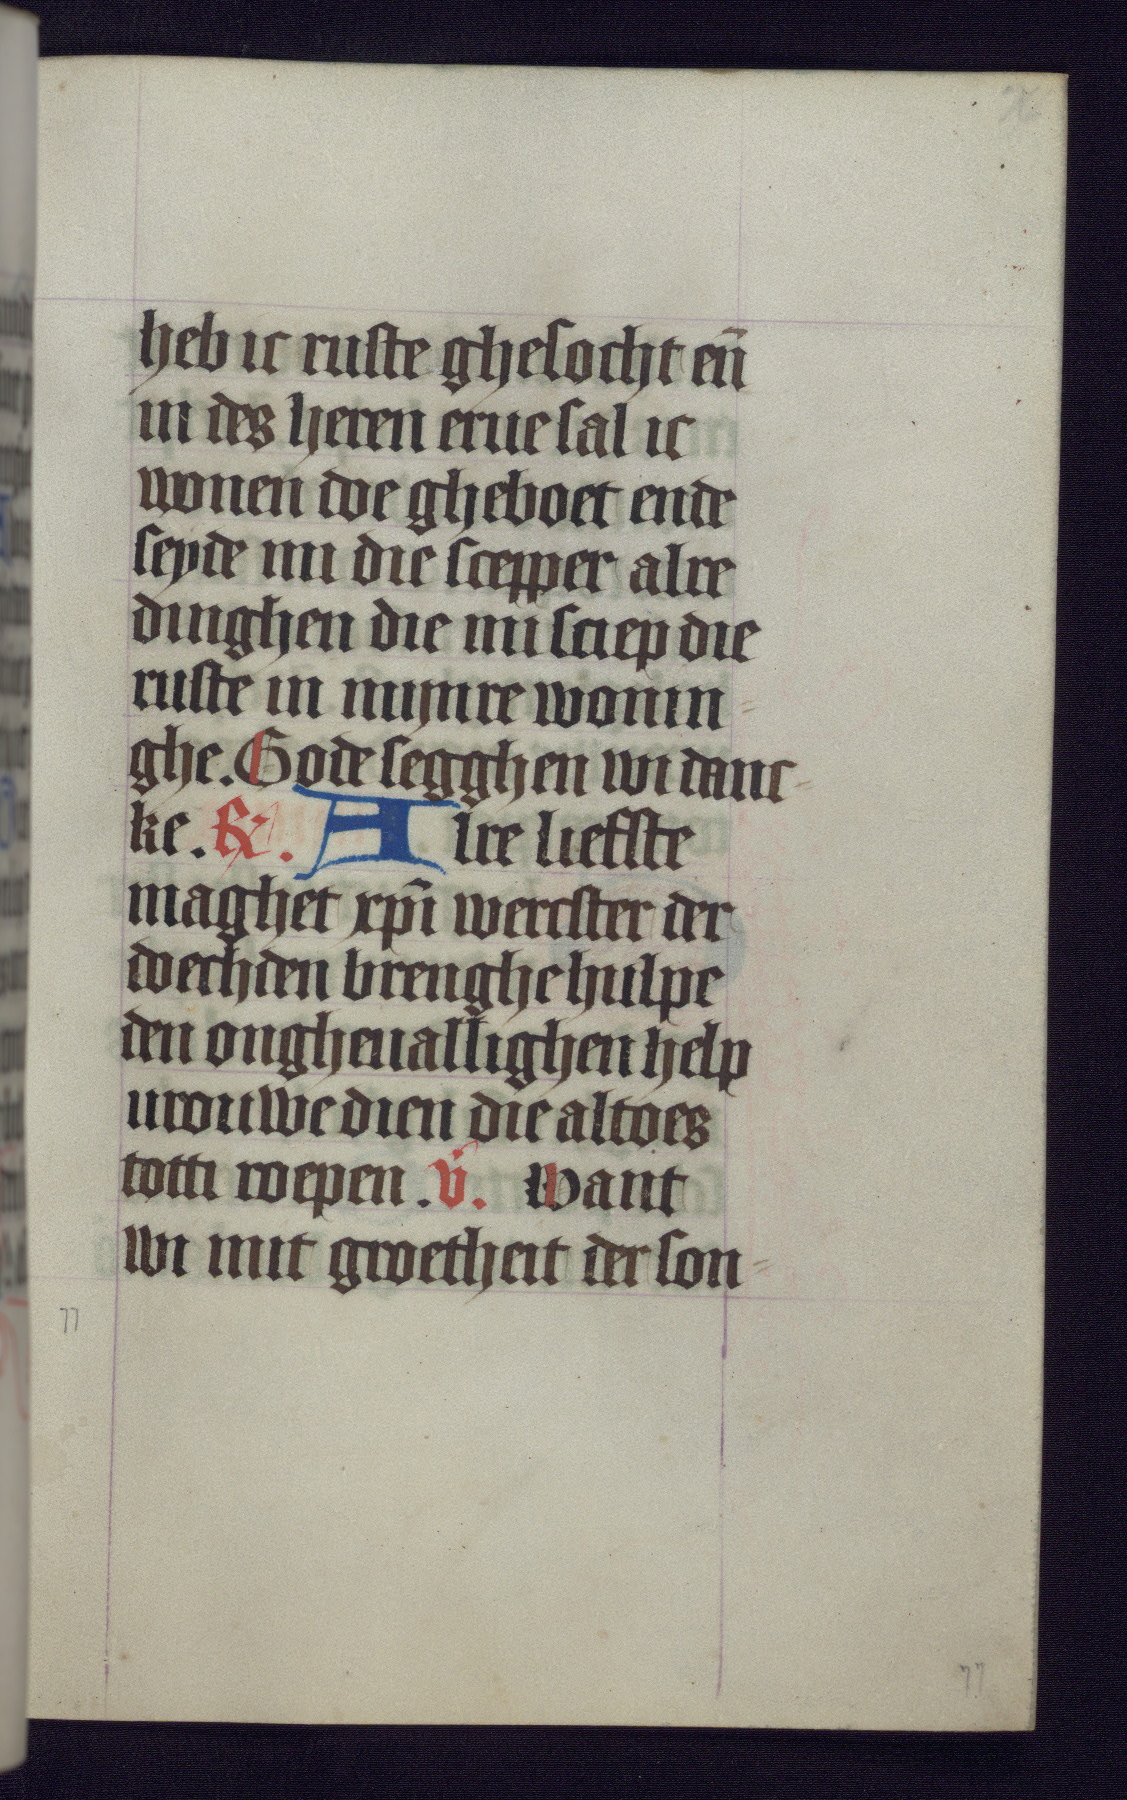 heb ic ruste ghesocht en̄
in des heren erue sal ic
wonen doe gheboet ende
seyde mi die scepper alre
dinghen die mi sciep die
ruste in mijnre wonin
ghe. Gode segghen wi danc
ke. ℟. Alre liefste
maghet xp̄i wercster der
doechden brenghe hulpe
den ongheuallighen help
vrouwe dien die altoes
totti roepen. v̄. Want
wi mit groetheit der son
77
77